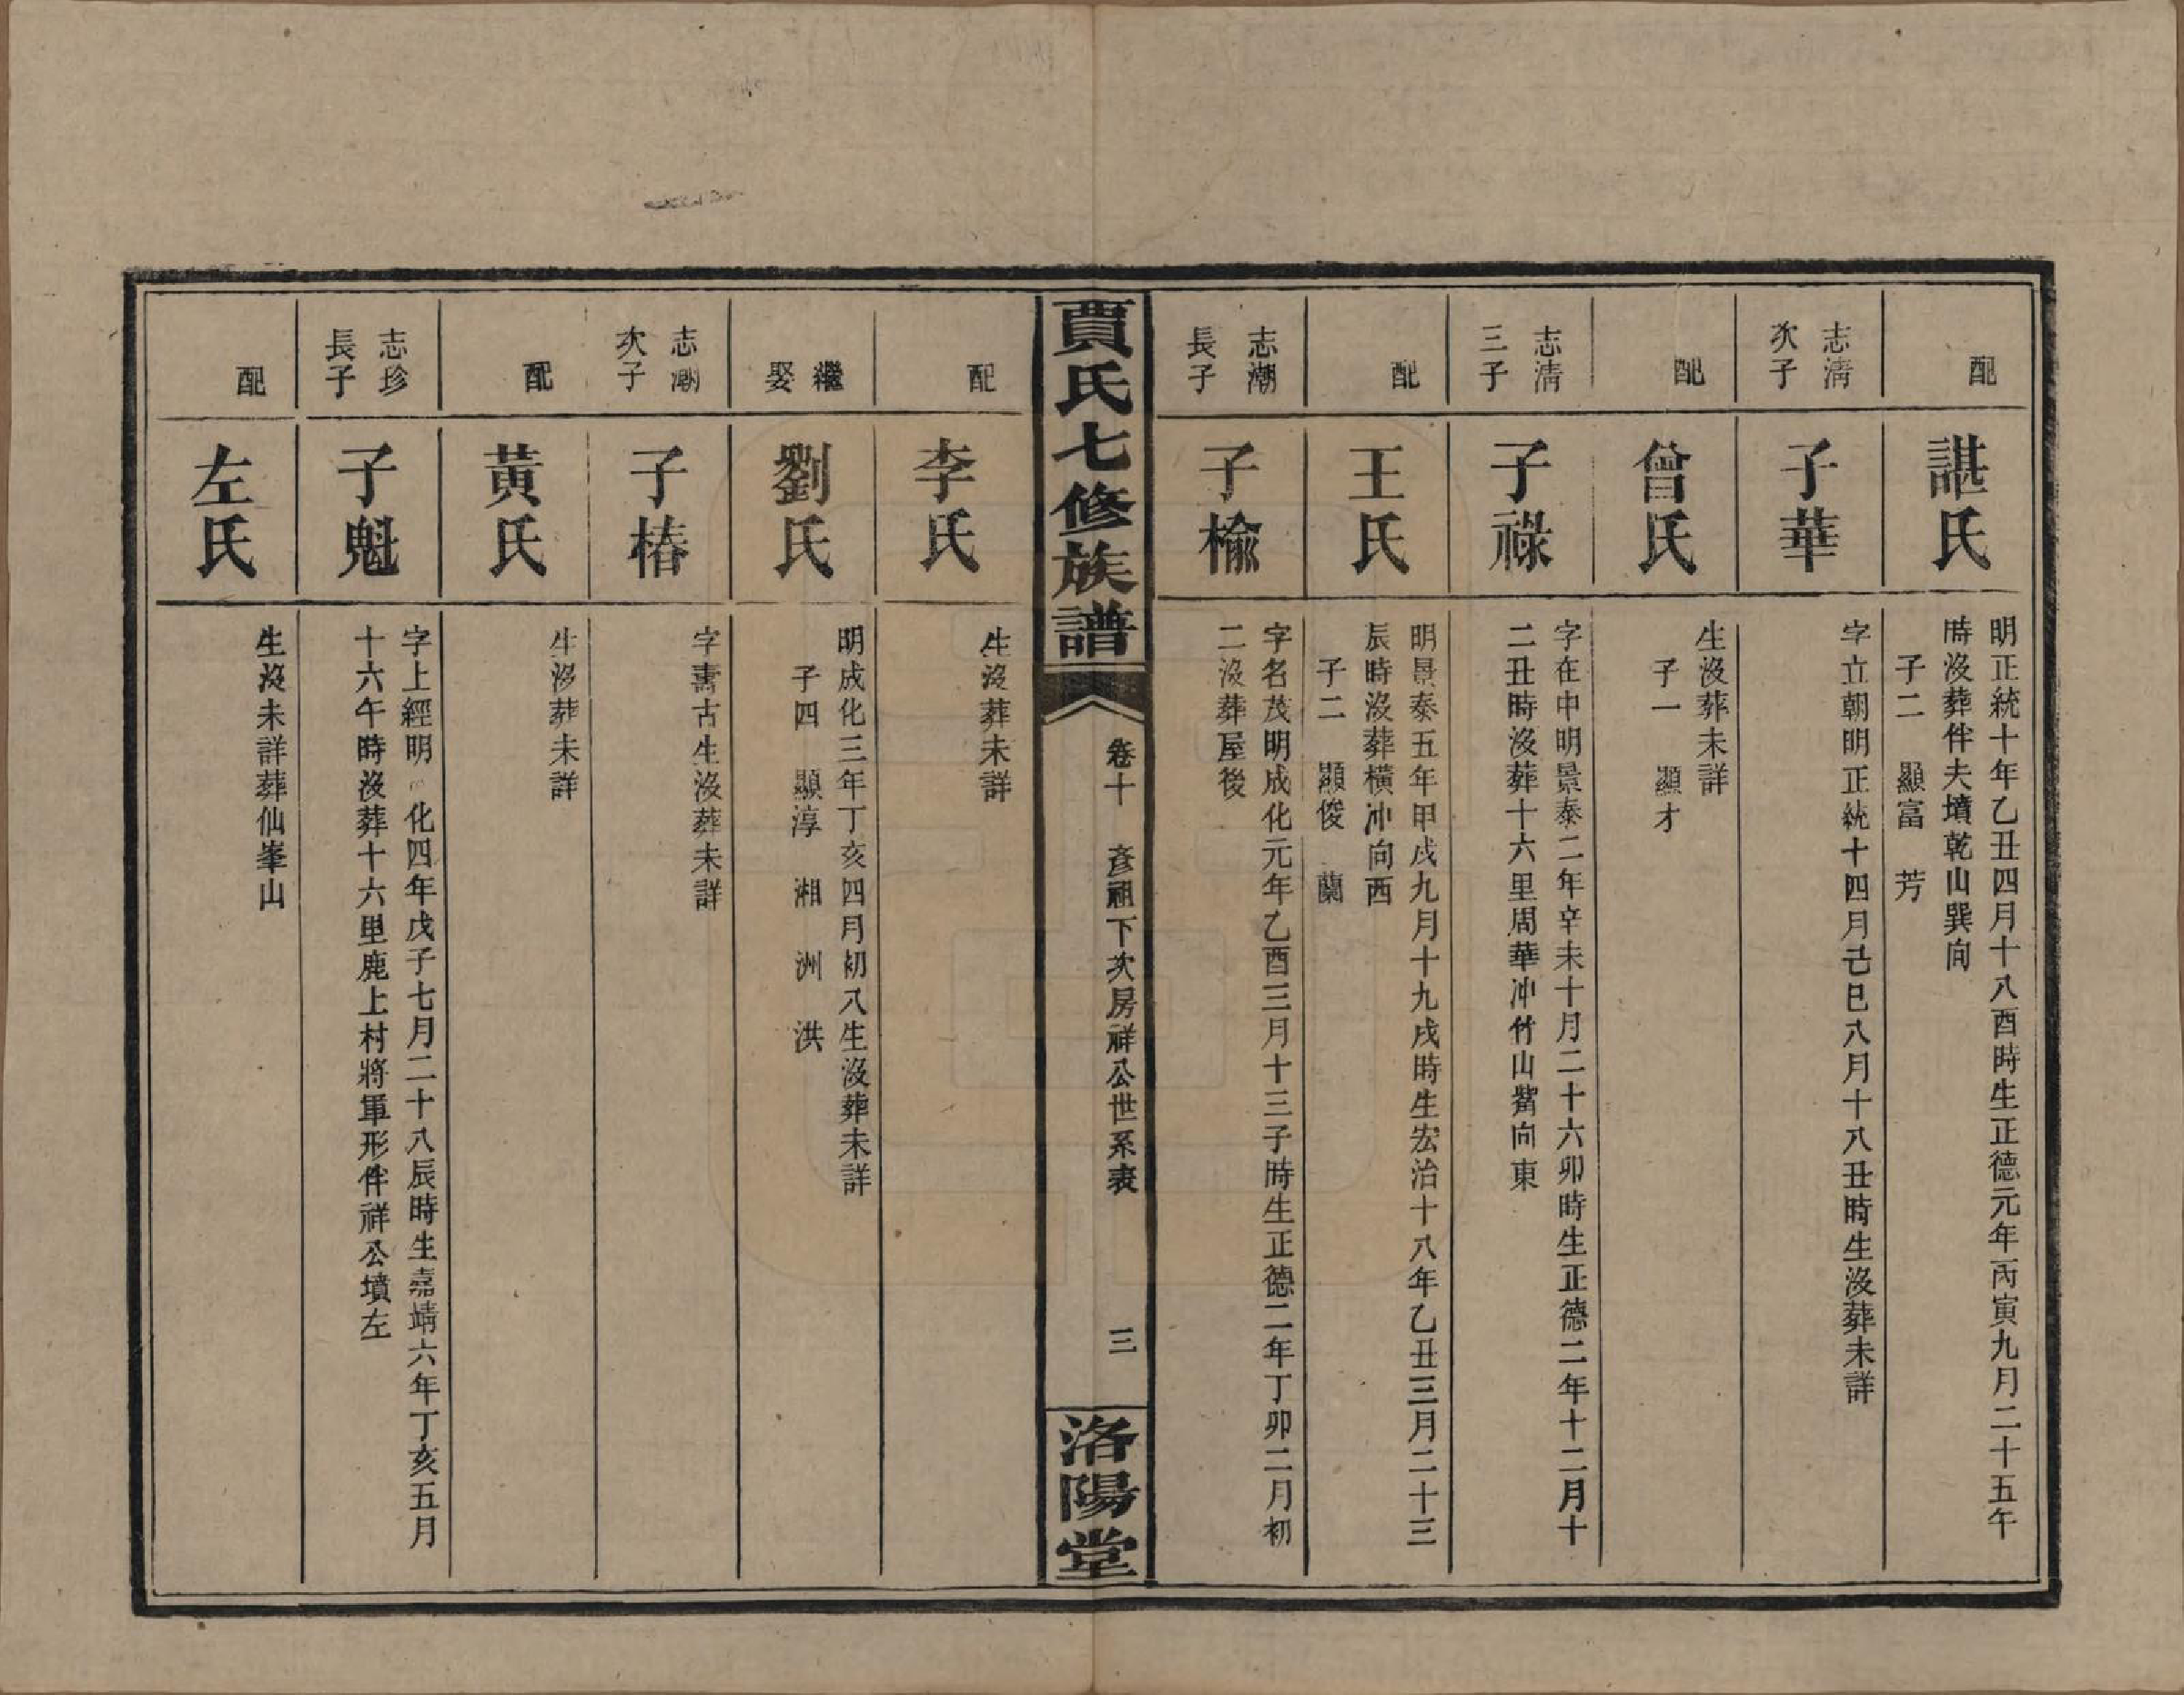 配
諶氏
明正統十年乙丑四月十八酉時生正德元年丙寅九月二十五午
時沒葬伴夫墳乾山巽向
子二　顯富　芳
志清
次子
子華
字立朝明正統十四月己巳八月十八丑時生沒葬未詳
配
曾氏
生沒葬未詳
子一　顯才
志清
三子
子祿
字在中明景泰二年辛未十月二十六卯時生正德二年十二月十
二丑時沒葬十六里周華冲竹山嘴向東
配
王氏
明景泰五年甲戌九月十九戌時生宏治十八年乙丑三月二十三
辰時沒葬橫冲向西
子二　顯俊　蘭
志潮
長子
子楡
字名茂明成化元年乙酉三月十三子時生正德二年丁卯二月初
二沒葬屋後
賈氏七修族譜
卷十　彥祖下次房祥公世系表
三
洛陽堂
配
李氏
生沒葬未詳
繼
娶
劉氏
明成化三年丁亥四月初八生沒葬未詳
子四　顯淳　湘　洲　洪
志潮
次子
子椿
字壽古生沒葬未詳
配
黃氏
生沒葬未詳
志珍
長子
子魁
字上經明化四年戊子七月二十八辰時生嘉靖六年丁亥五月
十六午時沒葬十六里鹿上村將軍形伴祥公墳左
配
左氏
生沒未詳葬仙峯山